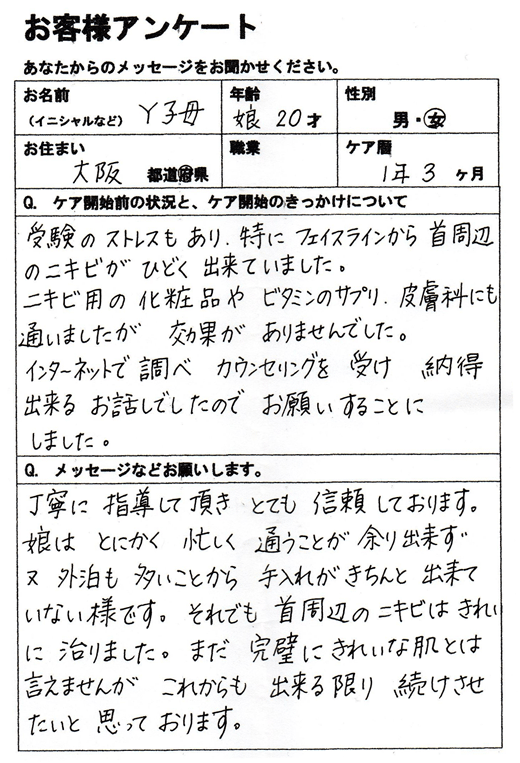 お客様アンケート
あなたからのメッセージをお聞かせください。
お名前
(イニシャルなど) Y子母
年齢
娘 20才
性別
男・女
お住まい
大阪 都道府県
職業
ケア暦
1年3ヶ月
Q. ケア開始前の状況と、ケア開始のきっかけについて
受験のストレスもあり、特にフェイスラインから首周辺
のニキビがひどく出来ていました。
ニキビ用の化粧品やビタミンのサプリ、皮膚科にも
通いましたが効果がありませんでした。
インターネットで調べカウンセリングを受け納得
出来るお話しでしたのでお願いすることに
しました。
Q. メッセージなどお願いします。
丁寧に指導して頂きとても信頼しております。
娘はとにかく忙しく通うことが余り出来ず
又外泊も多いことから手入れがきちんと出来て
いない様です。それでも首周辺のニキビはきれい
に治りました。まだ完璧にきれいな肌とは
言えませんがこれからも出来る限り続けさせ
たいと思っております。